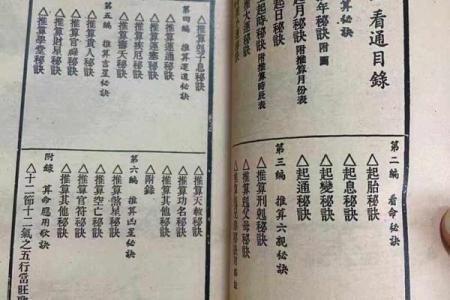 看通目錄
算秘訣
年秘訣 附圖
起月秘訣 附推算月份表
起日秘訣
起時秘訣 附推算時辰表
推大運秘訣
第二編 看命秘訣
△起胎秘訣
△起息秘訣
△起變秘訣
△起通秘訣
第三編 推算六親秘訣
△推算刑剋秘訣
△推算剋父母秘訣
△推算剋子息秘訣
第四編 推算運道秘訣
△推算運通秘訣
△推算運塞秘訣
△推算疾厄秘訣
△推算壽夭秘訣
第五編 推算吉星秘訣
△推算貴人秘訣
△推算官祿秘訣
△推算財帛秘訣
△推算學堂秘訣
△推算天赦秘訣
△推算功名秘訣
△推算其他秘訣
△附錄
第六編 推算凶星秘訣
△推算煞星秘訣
△推算空亡秘訣
△推算官符秘訣
△推算其他秘訣
附錄 算命應用歌訣
△十二節十二氣之五行當旺